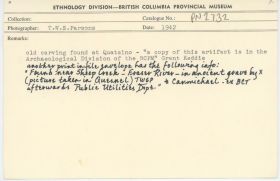 ETHNOLOGY DIVISION—BRITISH COLUMBIA PROVINCIAL MUSEUM
Collection: Catalogue No.: PN 2732
Photographer: T.W.S. Parsons Date: 1942
Remarks:
old carving found at Quatsino - "a copy of this artifact is in the
Archaeological Division of the BCPM" Grant Keddie
another print in file envelope has the following info:
"Found near Sheep Creek - Fraser River - in ancient grave by
(picture taken in Quesnel) TWSP Carmichael - ex BET
afterwards Public Utilities Dept."